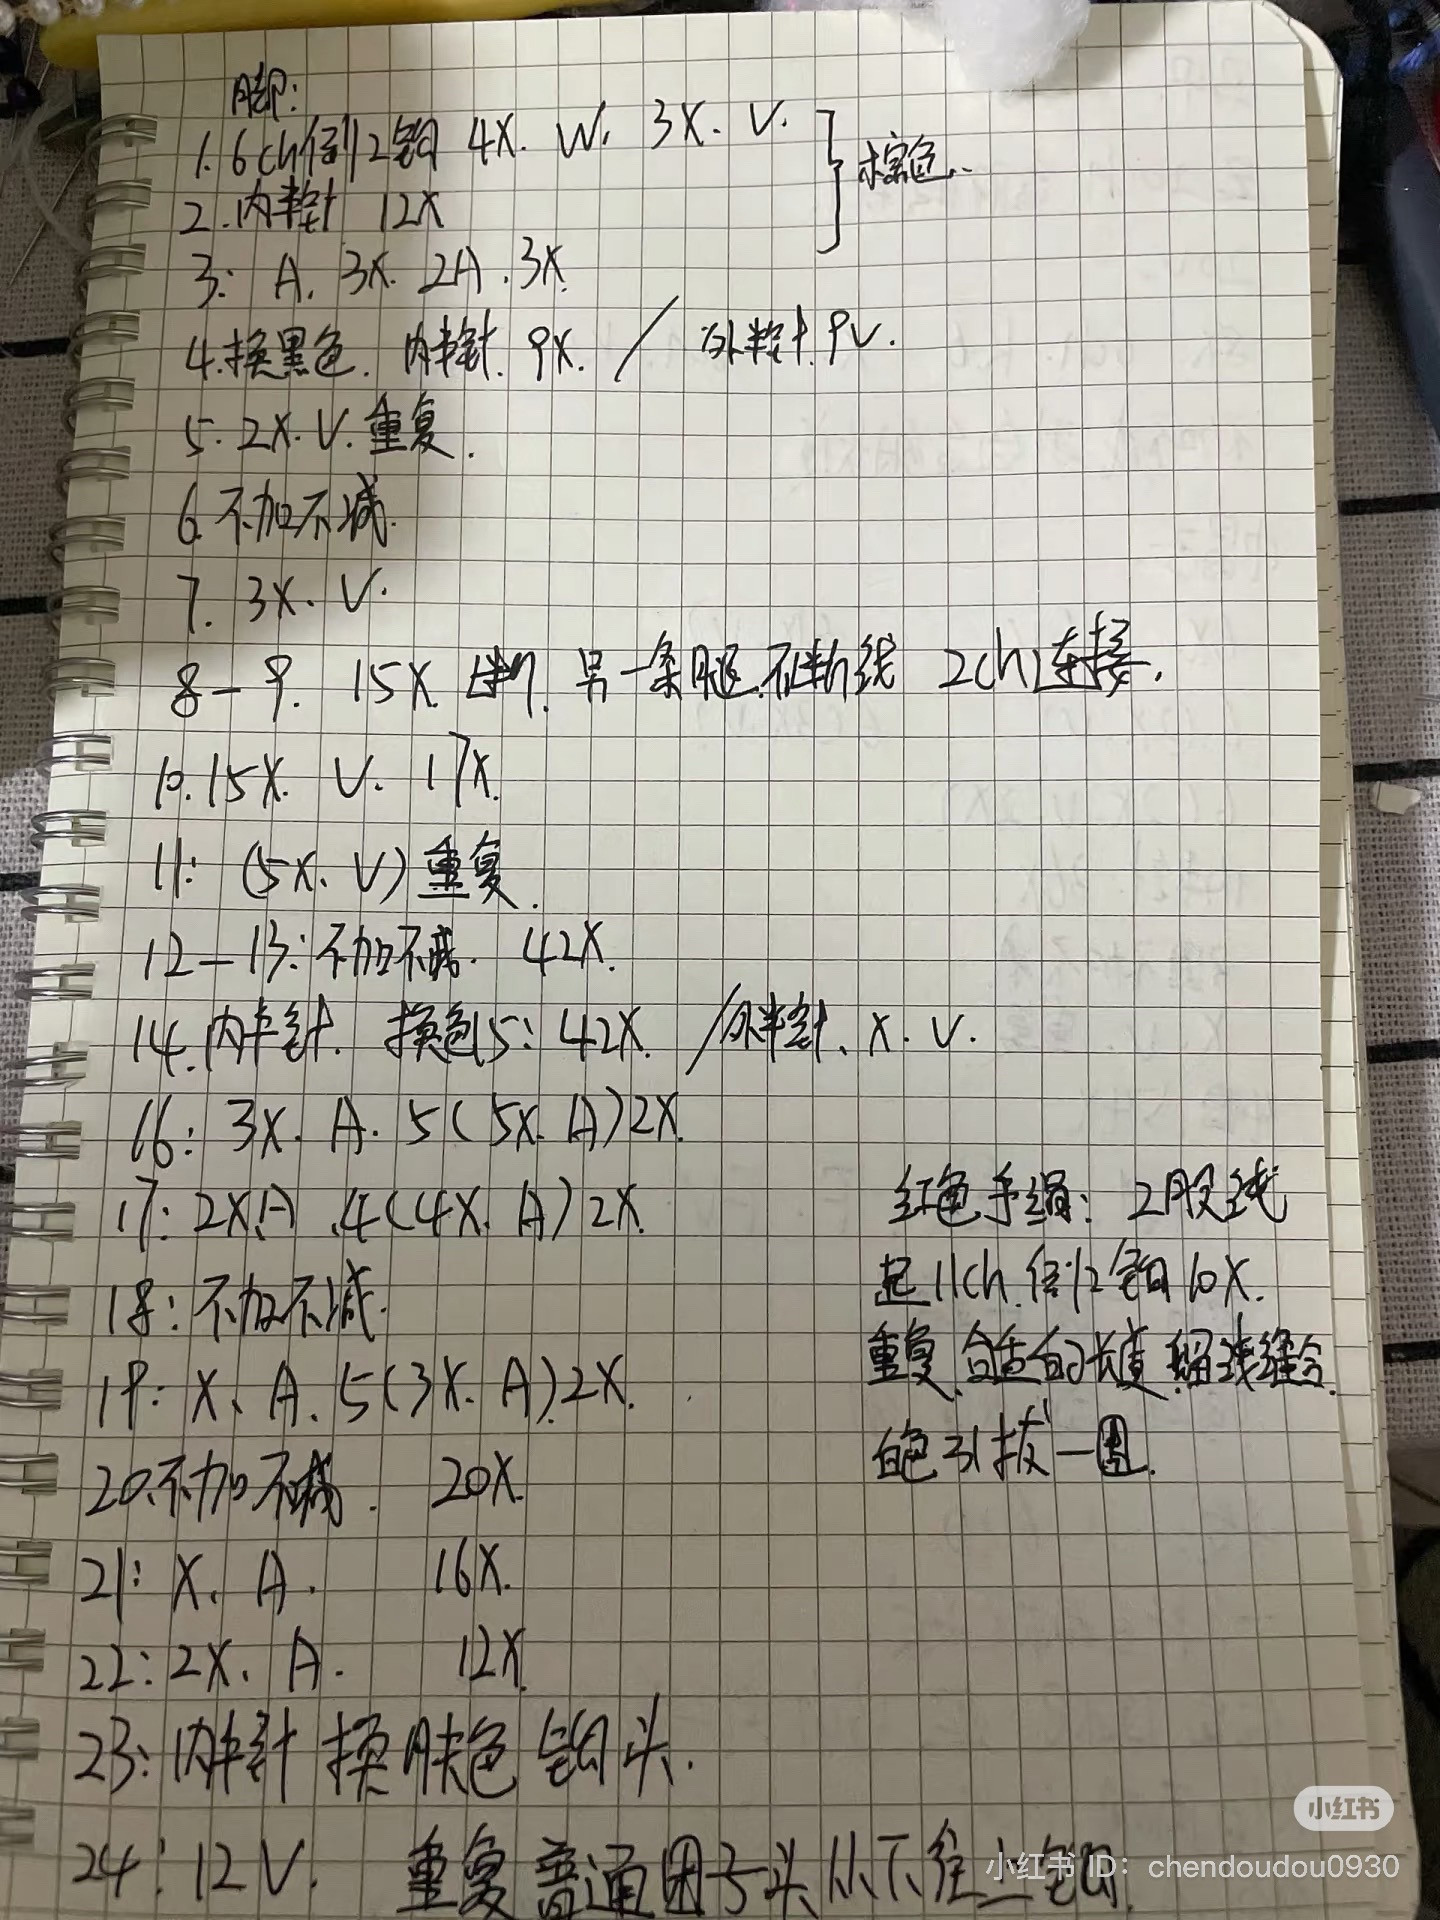 脚:
1. 6ch倒2钩 4X. W. 3X. V. } 棕色.
2. 内半针 12X
3: A. 3X. 2A. 3X.
4. 换黑色. 内半针. 9X. / 外半针. 9V.
5. 2X. V. 重复.
6. 不加不减.
7. 3X. V.
8-9. 15X. 断. 另一条腿. 不断线 2ch连接.
10. 15X. V. 17X.
11: (5X. V) 重复.
12-13: 不加不减. 42X.
14. 内半针. 换色15: 42X. / 外半针. X. V.
16: 3X. A. 5(5X. A) 2X.
17: 2X. A. 4(4X. A) 2X.
18: 不加不减.
19: X. A. 5(3X. A). 2X.
20. 不加不减. 20X.
21: X. A. 16X.
22: 2X. A. 12X.
23: 内半针 换肤色 钩头.
24: 12V. 重复普通团子头从下往上钩.
红色手绳: 2股线
起11ch. 倒2钩10X.
重复. 合适的长度. 留线缝合.
白色引拔一圈.
小红书
小红书 ID: chendoudou0930